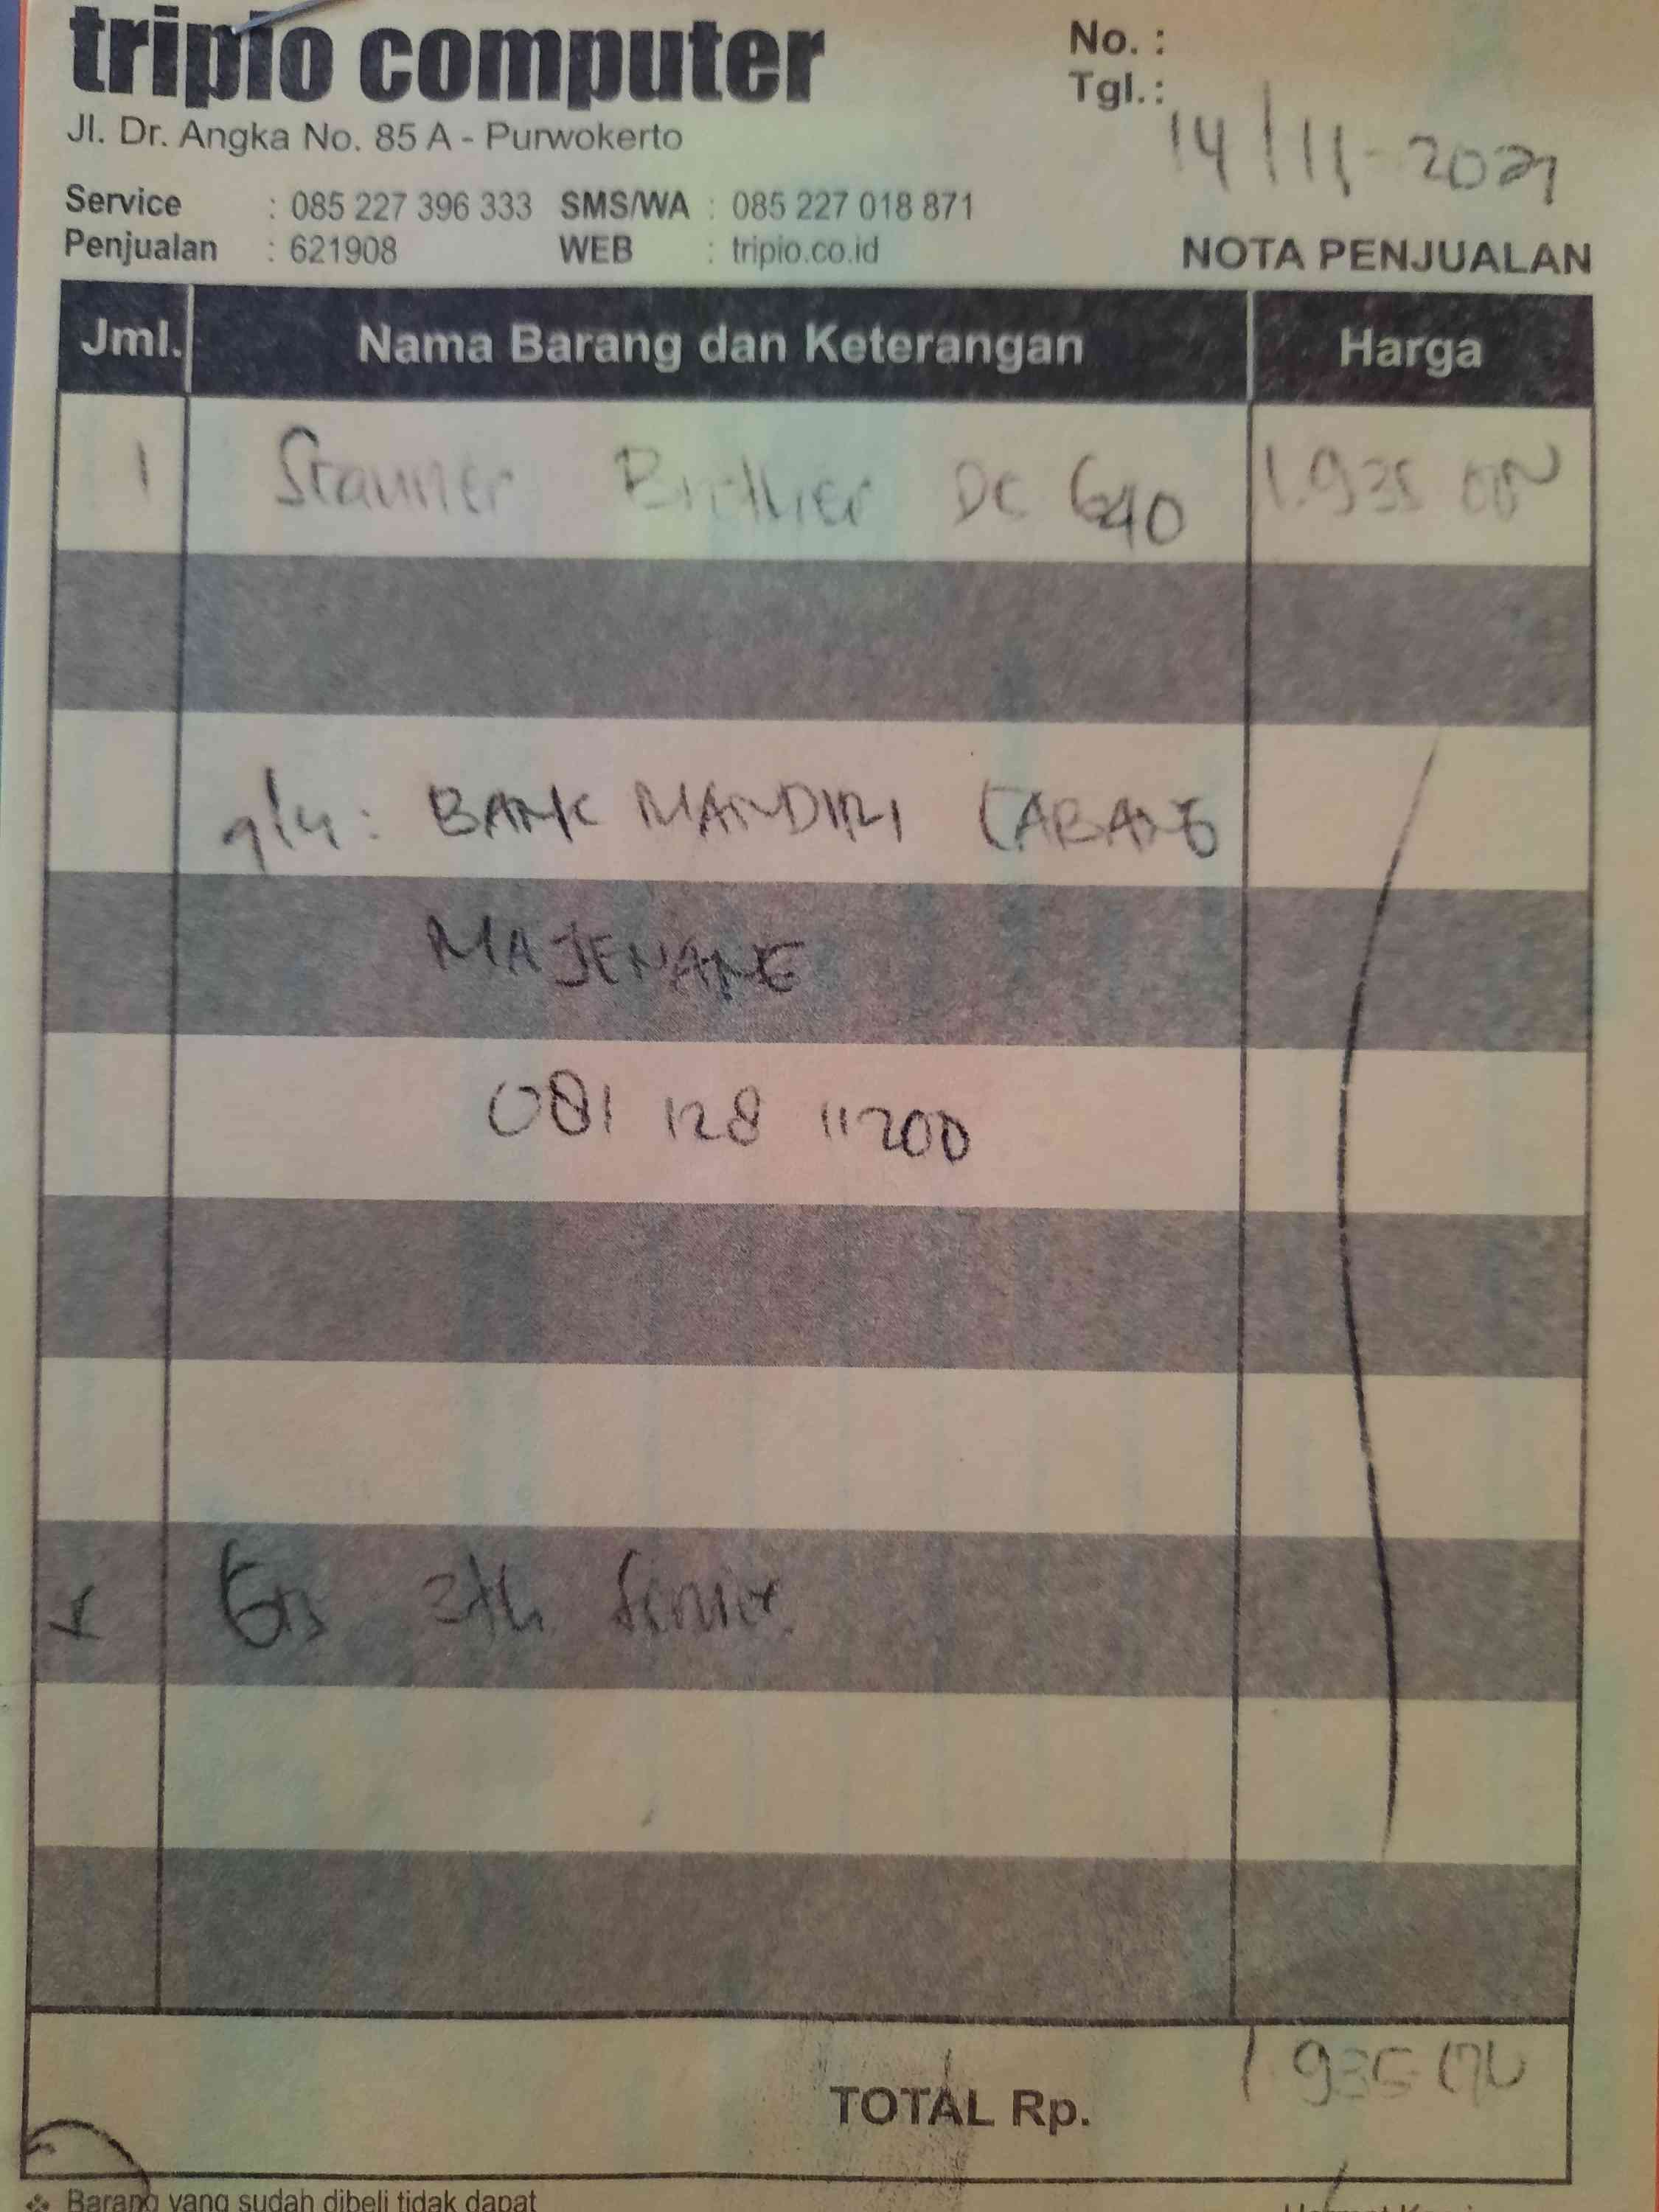 tripio computer
Jl. Dr. Angka No. 85 A - Purwokerto
Service : 085 227 396 333 SMS/WA : 085 227 018 871
Penjualan : 621908 WEB : tripio.co.id
No. :
Tgl. : 14/11-2021
NOTA PENJUALAN
Jml. Nama Barang dan Keterangan Harga
1 Scanner Brother DC 640 1.935 000
BANK MANDIRI CABANG
MAJENANG
081 128 11200
Service
TOTAL Rp. 1 935 000
❖ Barang yang sudah dibeli tidak dapat